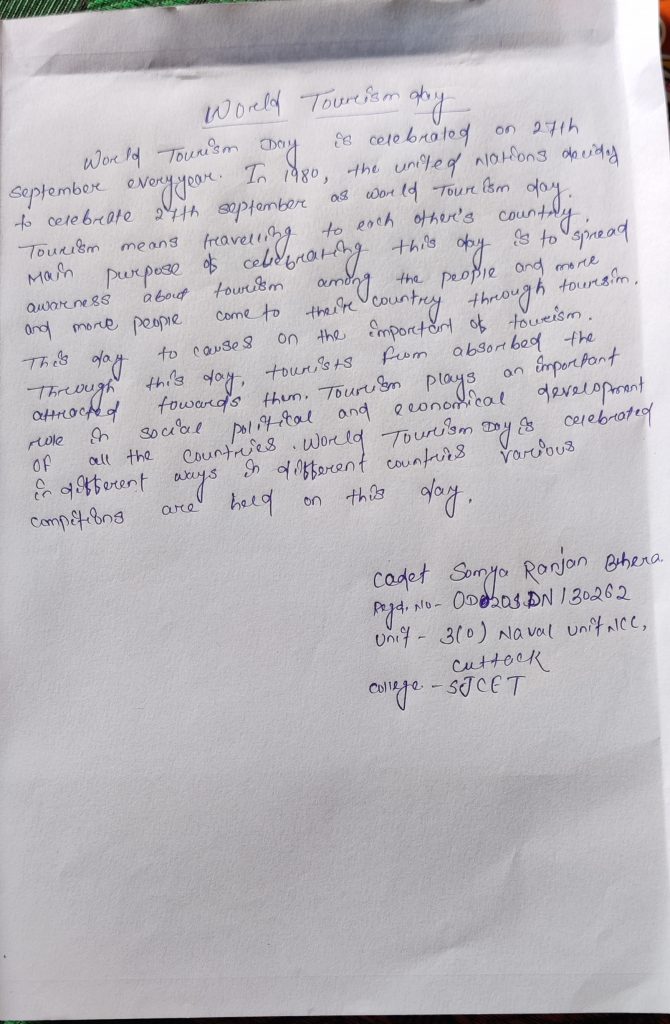 World Tourism day
World Tourism Day is celebrated on 27th
september everyyear. In 1980, the united Nations decided
to celebrate 27th september as world Tourism day.
Tourism means travelling to each other's country.
Main purpose of celebrating this day is to spread
awarness about tourism among the people and more
and more people come to their country through tourism.
This day to causes on the important of tourism.
Through this day, tourists from absorbed the
attracted towards them. Tourism plays an important
role in social political and economical development
of all the countries. World Tourism Day is celebrated
in different ways in different countries various
compitions are held on this day.
Cadet Somya Ranjan Behera
Regd. No -
Unit - 3(O) Naval unit NCC,
Cuttack
College - SJCET